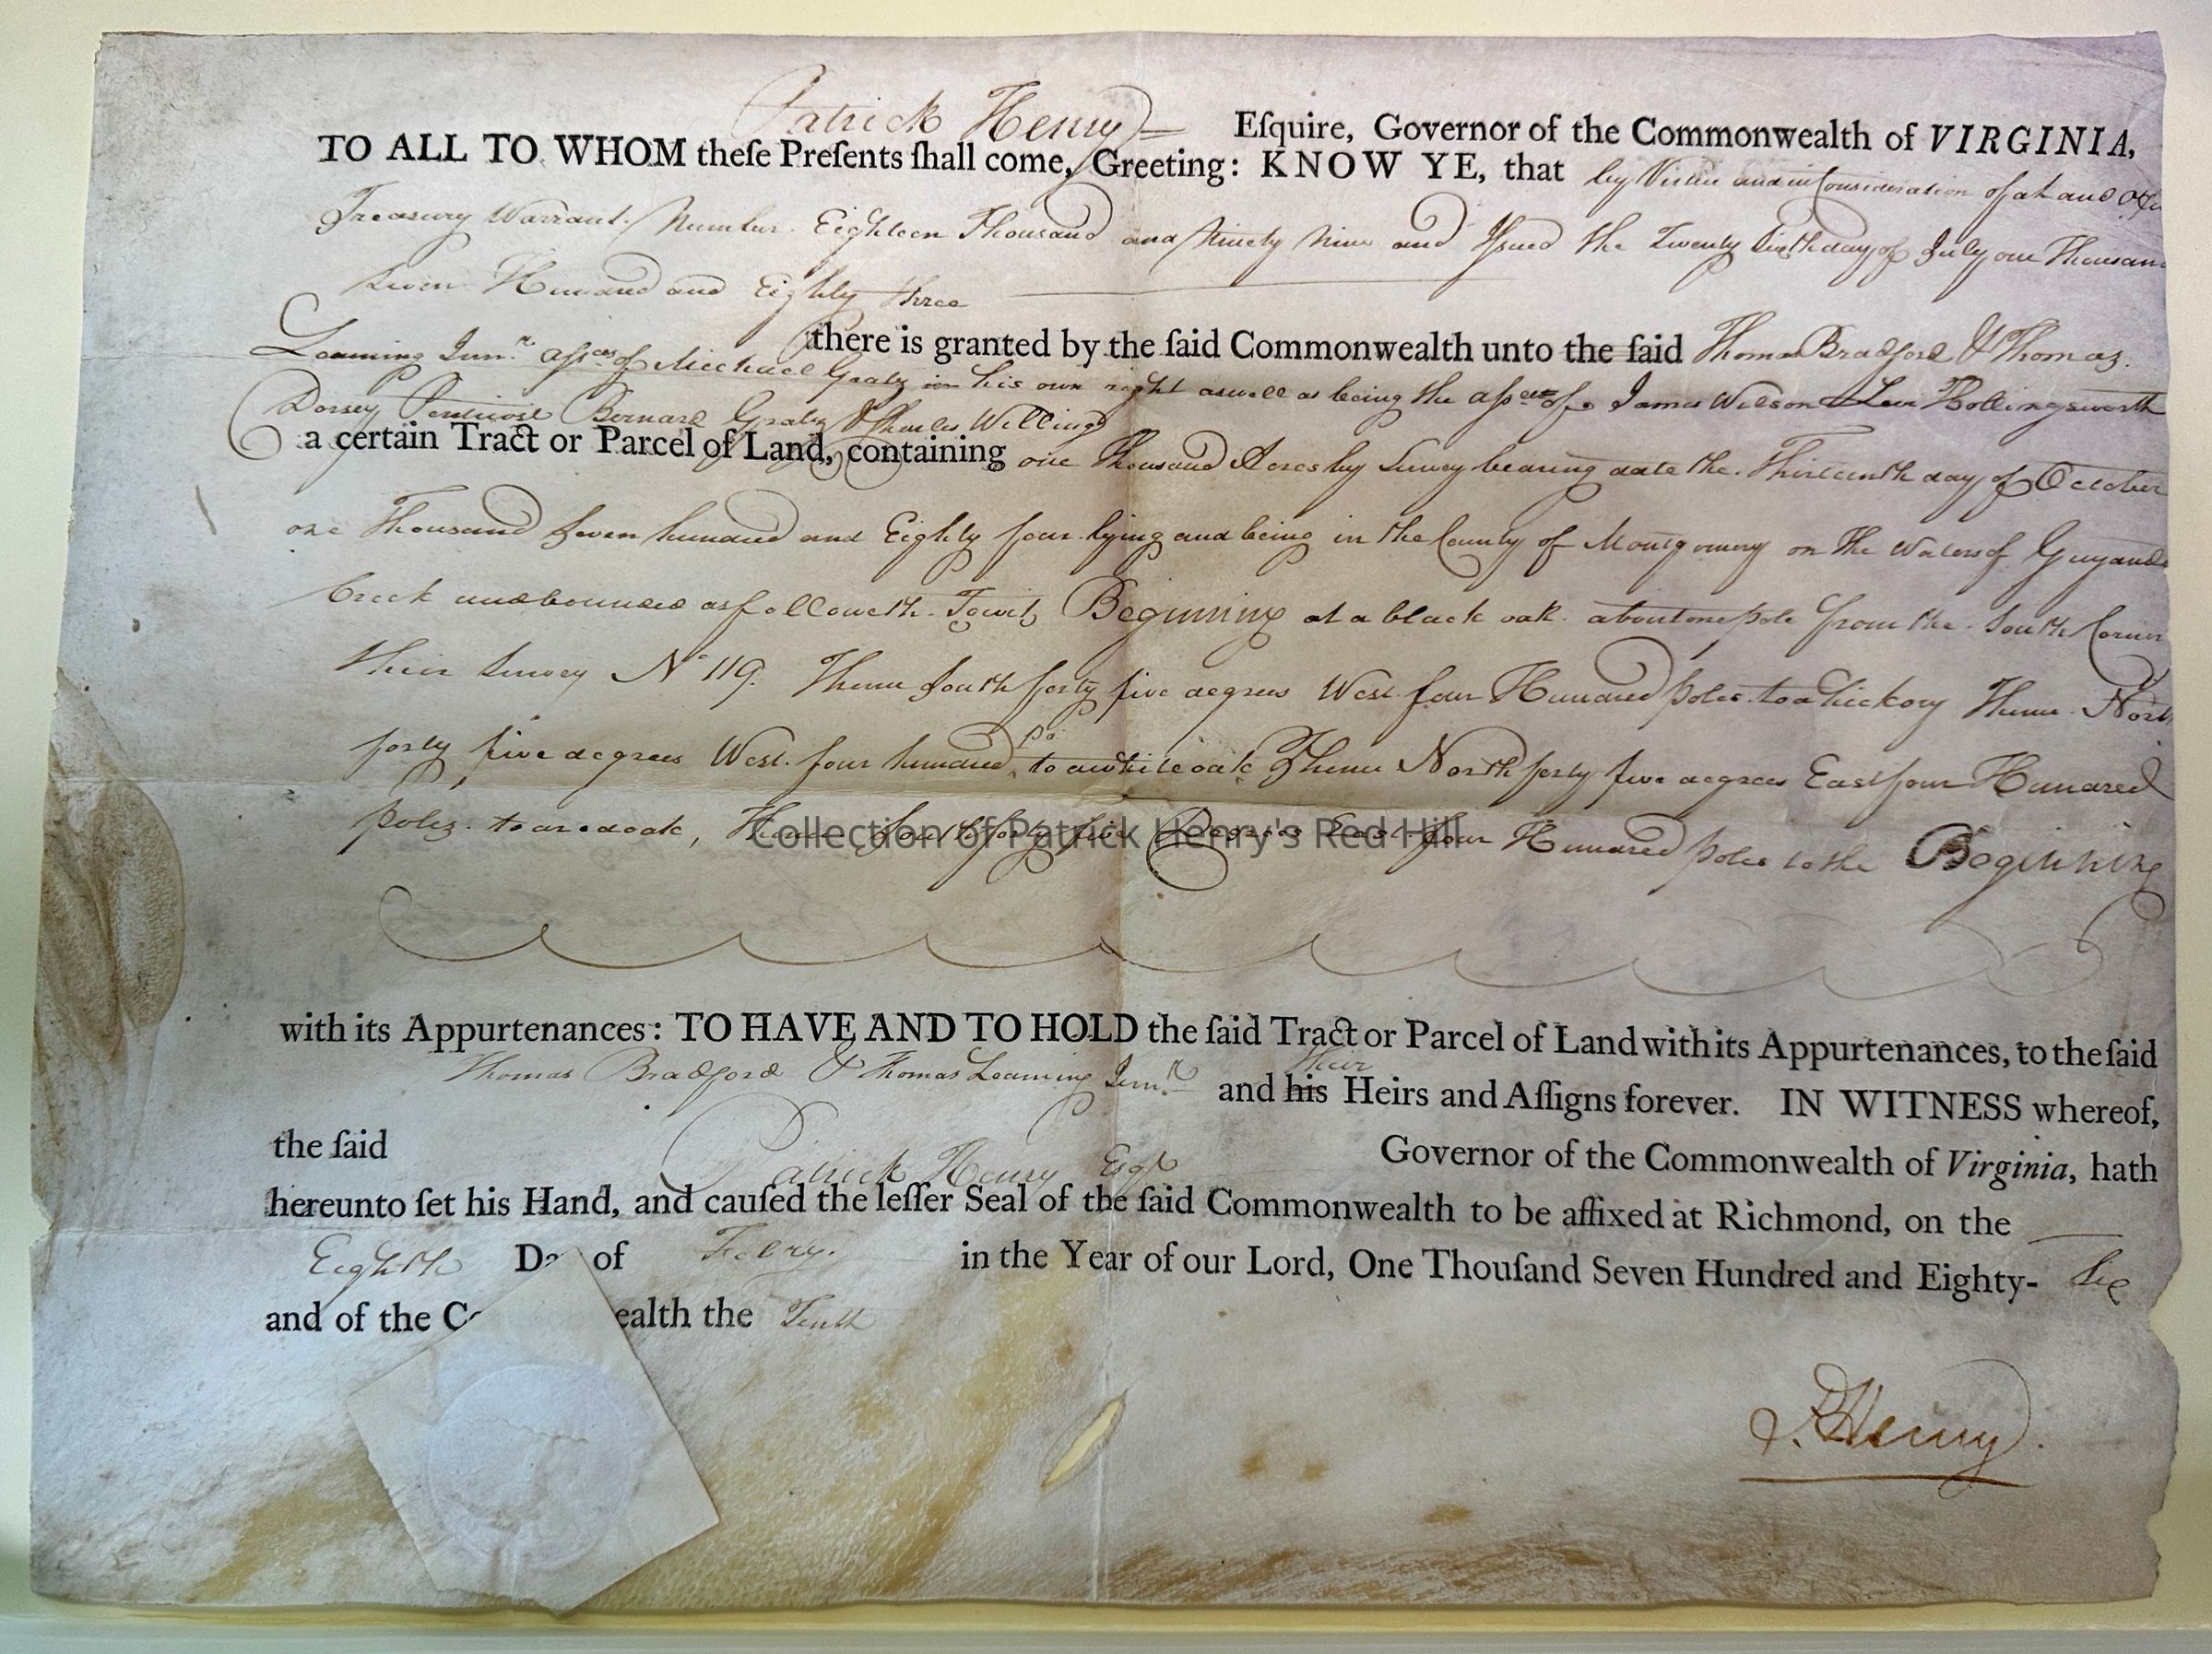 Patrick Henry Eſquire, Governor of the Commonwealth of VIRGINIA,
TO ALL TO WHOM theſe Preſents ſhall come, Greeting: KNOW YE, that by Virtue and in Consideration of a Land Office
Treasury Warrant Number Eighteen Thousand and Ninety Nine and Issued the Twenty day of July one Thousand
Seven Hundred and Eighty three
there is granted by the ſaid Commonwealth unto the ſaid Thomas Bradford & Thomas
Leaming Junr. assees of Michael Gratz in his own right as well as being the assee of James Wilson Levi Hollingsworth
Dorsey Pentecost Bernard Gratz & Charles Willing
a certain Tract or Parcel of Land, containing one Thousand Acres by Survey bearing date the Thirteenth day of October
one Thousand Seven hundred and Eighty four lying and being in the County of Montgomery on the Waters of Guyando
Creek and bounded as followeth Towit, Beginning at a black oak about one pole from the South Corner
their Survey No 119. Thence South forty five degrees West four Hundred poles to a hickory Thence North
forty five degrees West four hundred po. to a white oak Thence North forty five degrees East four Hundred
poles to a red oak, Thence South forty five Degrees East four Hundred poles to the Beginning
Collection of Patrick Henry's Red Hill
with its Appurtenances: TO HAVE AND TO HOLD the ſaid Tract or Parcel of Land with its Appurtenances, to the ſaid
Thomas Bradford & Thomas Leaming Junr. and his their Heirs and Aſſigns forever. IN WITNESS whereof,
the ſaid Patrick Henry Esqr Governor of the Commonwealth of Virginia, hath
hereunto ſet his Hand, and cauſed the leſſer Seal of the ſaid Commonwealth to be affixed at Richmond, on the
Eighth Da of Febry. in the Year of our Lord, One Thouſand Seven Hundred and Eighty- Six
and of the Co ealth the Tenth
P. Henry.